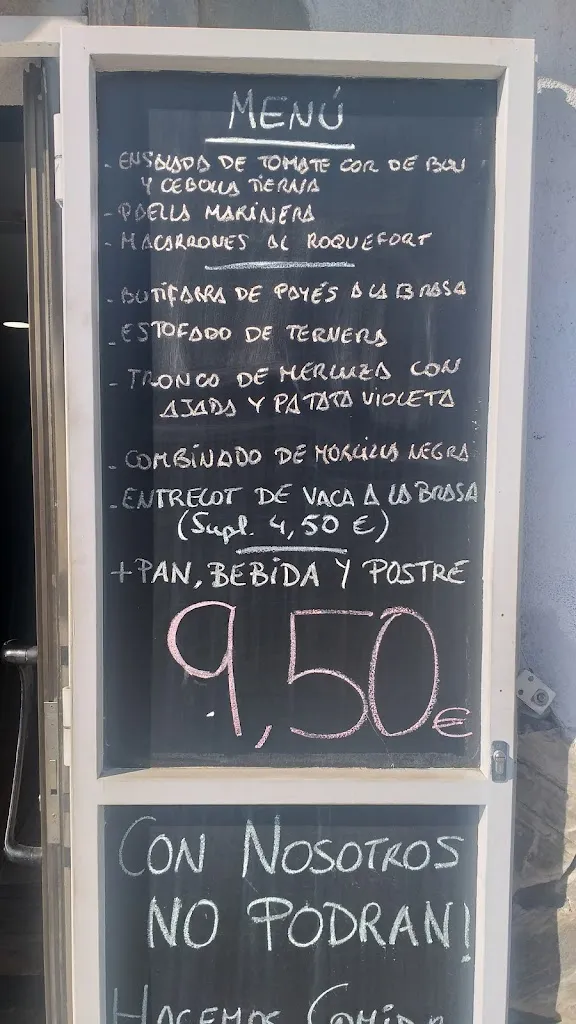 MENÚ
- ENSALADA DE TOMATE COR DE BOU
Y CEBOLLA TIERNA
- PAELLA MARINERA
- MACARRONES AL ROQUEFORT
- BUTIFARRA DE PAYÉS A LA BRASA
- ESTOFADO DE TERNERA
- TRONCO DE MERLUZA CON
AJADA Y PATATA VIOLETA
- COMBINADO DE MORCILLA NEGRA
- ENTRECOT DE VACA A LA BRASA
(Supl. 4,50 €)
+ PAN, BEBIDA Y POSTRE
9,50€
CON NOSOTROS
NO PODRAN!
HACEMOS COMIDA